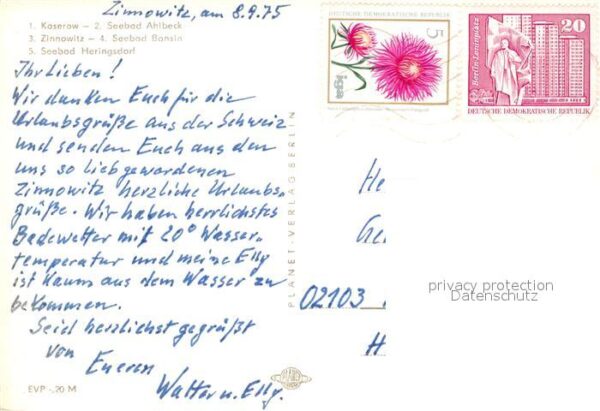 Zinnowitz, am 8.9.75
1. Koserow – 2. Seebad Ahlbeck
3. Zinnowitz – 4. Seebad Bansin
5. Seebad Heringsdorf
Ihr Lieben!
Wir danken Euch für die
Urlaubsgrüße aus der Schweiz
und senden Euch aus dem
uns so liebgewordenen
Zinnowitz herzliche Urlaubs-
grüße. Wir haben herrlichstes
Badewetter mit 20° Wasser-
temperatur und meine Elly
ist kaum aus dem Wasser zu
bekommen.
Seid herzlichst gegrüßt
von
Eueren
Walter u. Elly.
EVP -,20 M
PLANET-VERLAG BERLIN
DEUTSCHE DEMOKRATISCHE REPUBLIK
5
iga
20
Berlin-Leninplatz
DEUTSCHE DEMOKRATISCHE REPUBLIK
He
Ge
02103
H
privacy protection
Datenschutz